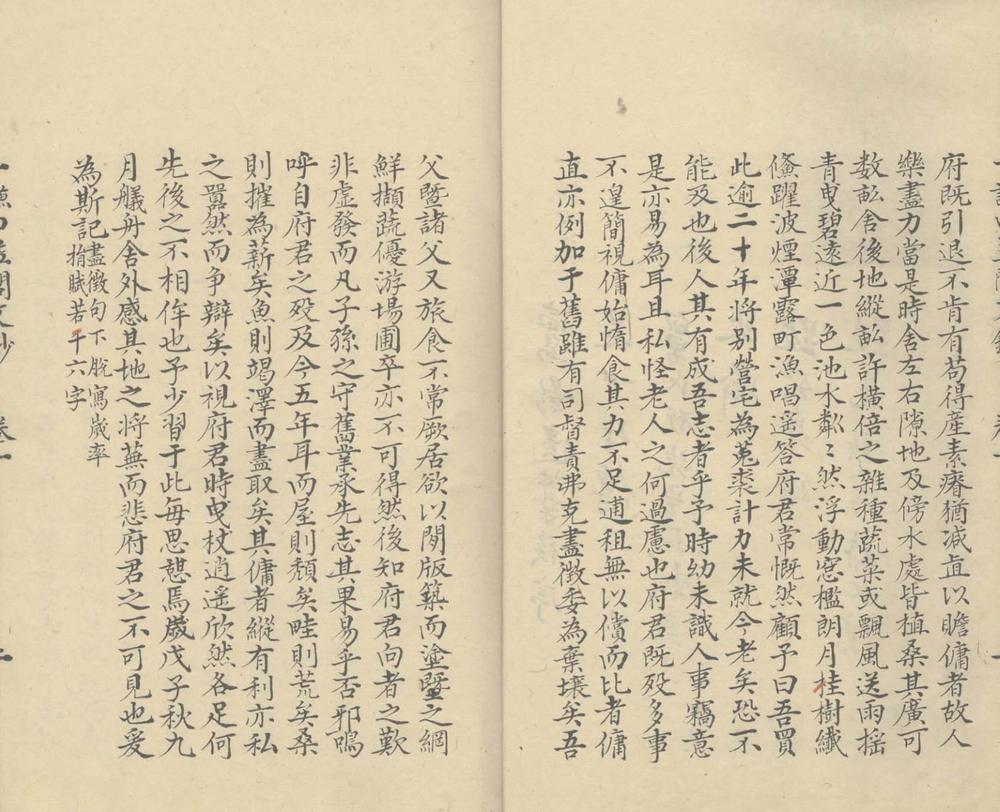 府既引退不肯有苟得產素瘠猶减直以贍傭者故人
樂盡力當是時舍左右隙地及傍水處皆植桑其廣可
数畝舍後地縱畝許橫倍之雜種蔬菜或飄風送雨搖
青曳碧遠近一色池水粼〻然浮動窓檻朗月桂樹纖
鯈躍波煙潭露町漁唱遥答府君常慨然顧予曰吾買
此逾二十年将别營宅為菟裘計力未就今老矣恐不
能及也後人其有成吾志者乎予時幼未識人事竊意
是亦易為耳且私怪老人之何過慮也府君既殁多事
不遑簡視傭始惰食其力不足逋租無以償而比者傭
直亦例加于舊雖有司督責弗克盡徵委為棄壤矣吾
父暨諸父又旅食不常厥居欲以閒版築而塗塈之網
鮮擷蔬優游場圃卒亦不可得然後知府君向者之歎
非虚發而凡子孫之守舊業承先志其果易乎否邪嗚
呼自府君之殁及今五年耳而屋則頹矣畦則荒矣桑
則摧為薪矣魚則竭澤而盡取矣其傭者縱有利亦私
之囂然而争辯矣以視府君時曳杖逍遥欣然各足何
先後之不相侔也予少習于此每思憇焉歲戊子秋九
月艤舟舍外感其地之将蕪而悲府君之不可見也爰
為斯記盡徵句下脫寫歲率
捐賦若干六字